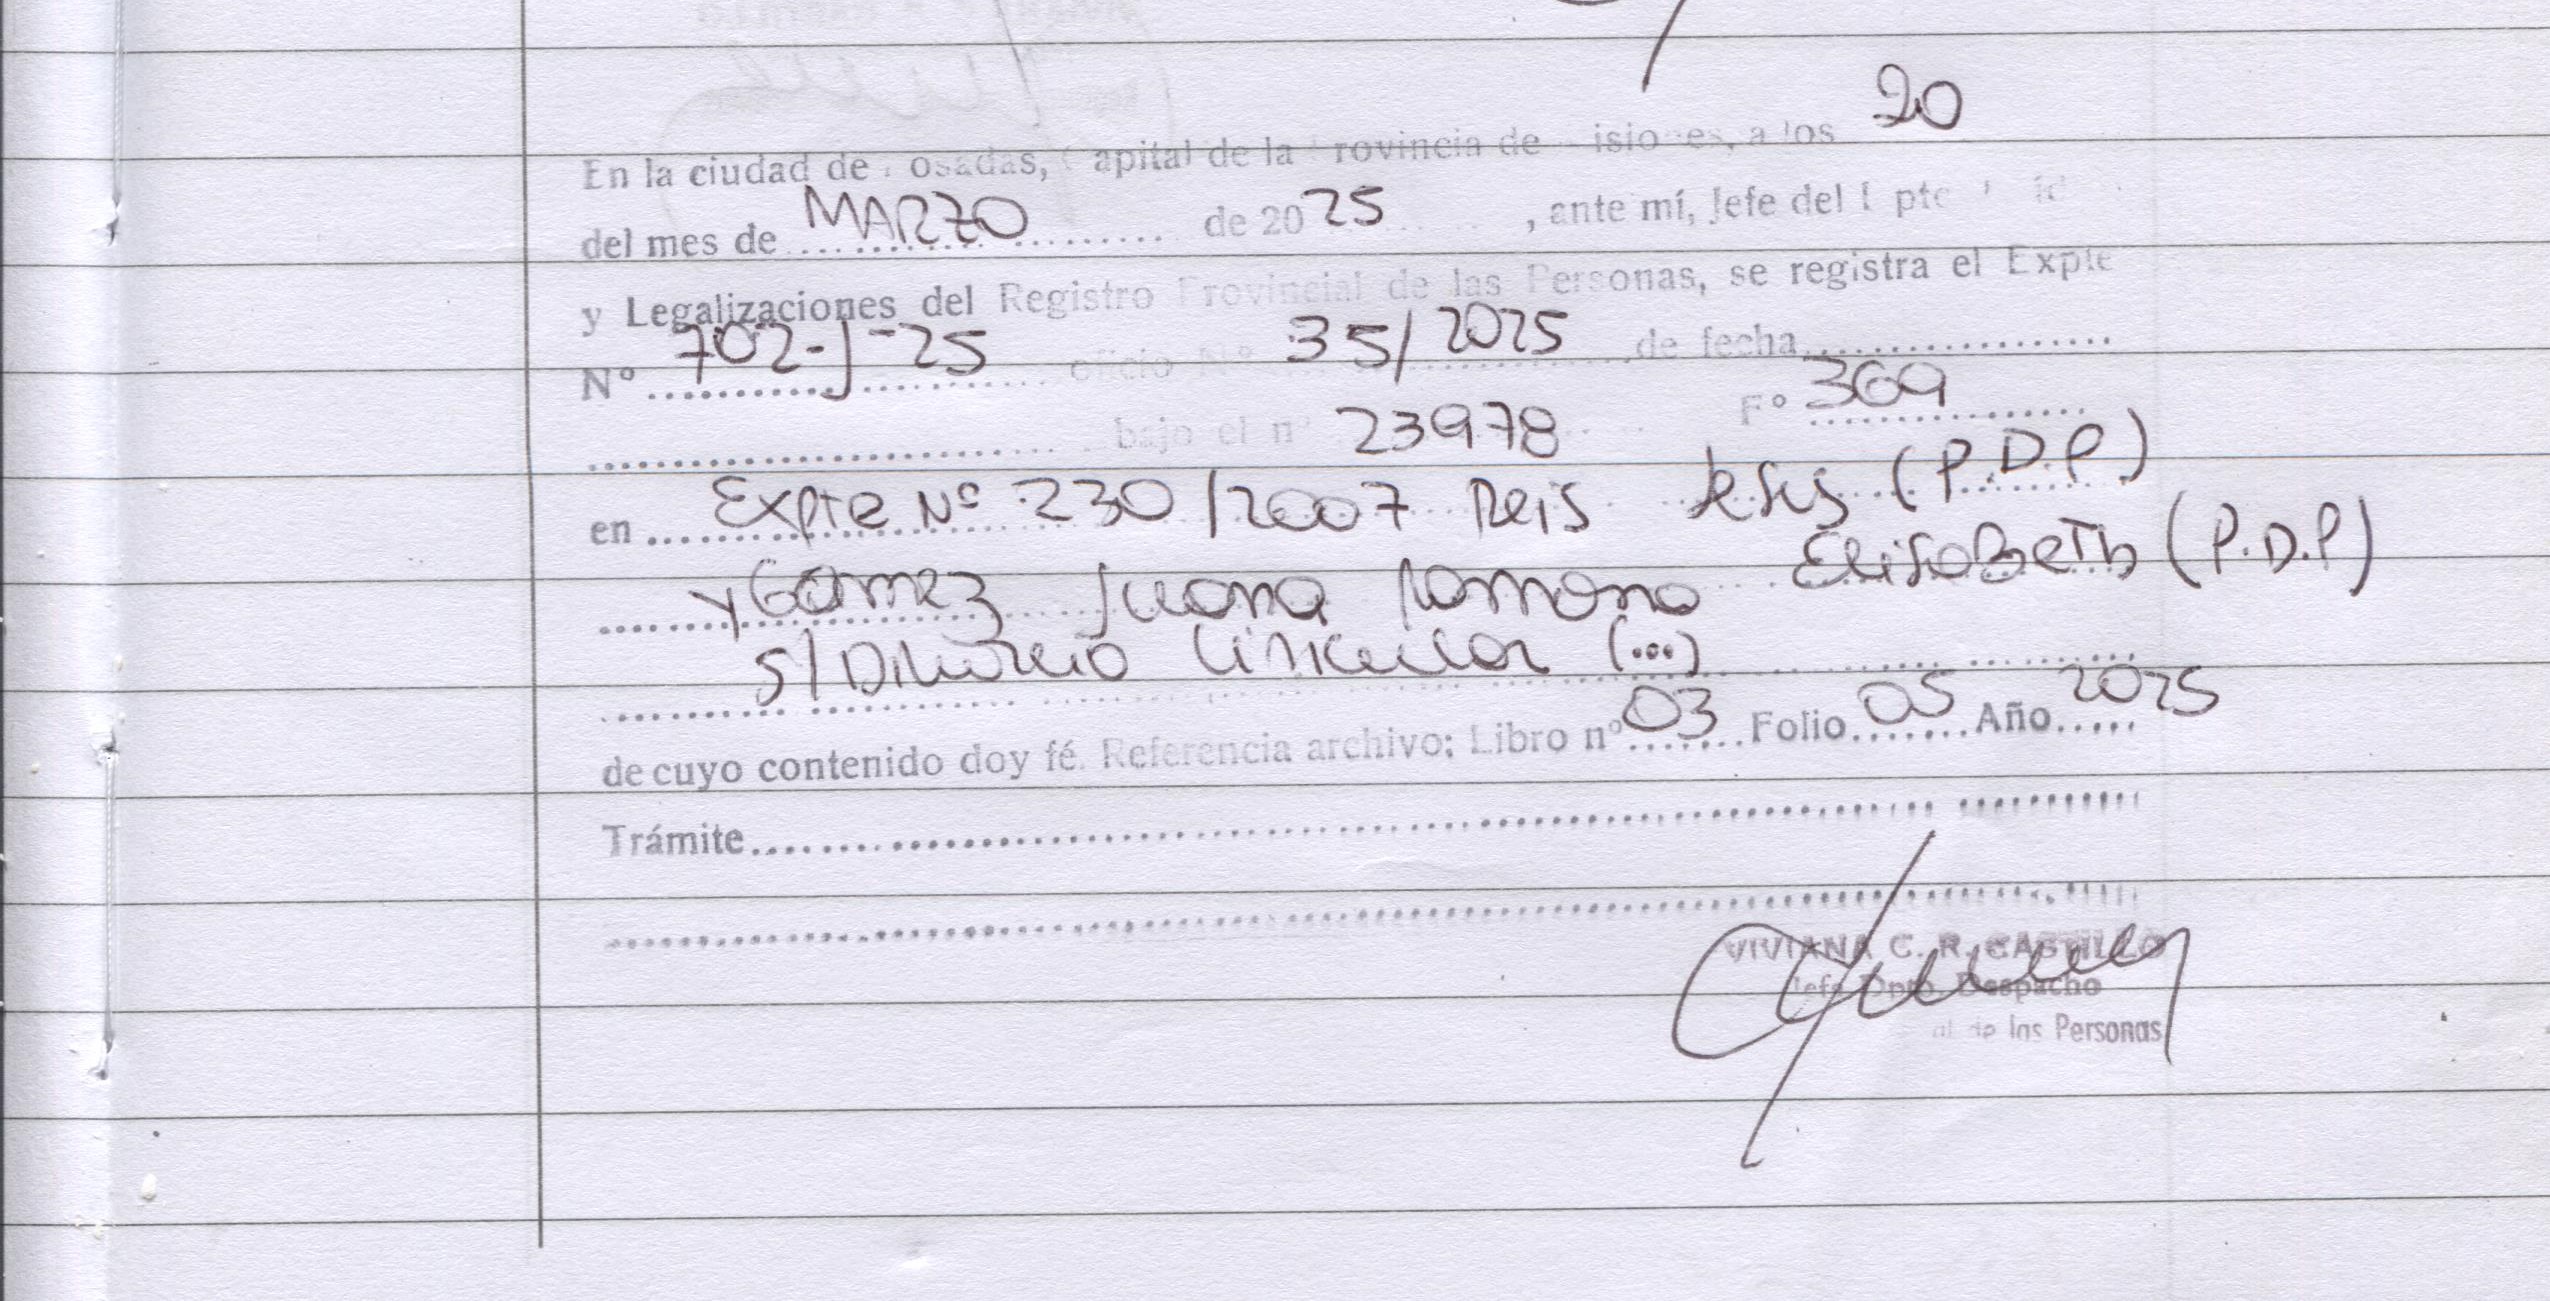 20
En la ciudad de Posadas, Capital de la Provincia de Misiones, a los
del mes de MARZO de 2025, ante mí, Jefe del Dpto
y Legalizaciones del Registro Provincial de las Personas, se registra el Expte
Nº 702-J-25 oficio Nº 35/2025 de fecha
bajo el nº 23978 Fº 369
en Expte Nº 230/2007 Reis Jesus (P.D.P)
y Gomez Juana Ramona Elisabeth (P.D.P)
s/Divorcio Vincular (...)
de cuyo contenido doy fé. Referencia archivo; Libro nº 03 Folio 05 Año 2025
Trámite
VIVIANA C. R. CASTILLO
Jefe Dpto. Despacho
de las Personas